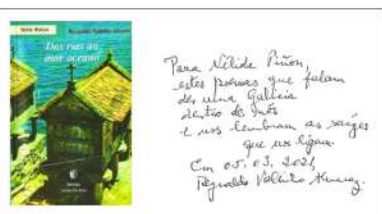 Reynaldo Valinho Alvarez
Das rias ao
mar oceano
Para Nélida Piñon,
estes poemas que falam
de uma Galícia
dentro de nós
e nos lembram as raízes
que nos ligam.
Em 05.03.2021
Reynaldo Valinho Alvarez.